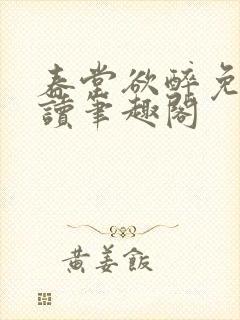 春棠欲醉免
讀筆趣閣
黃姜飯